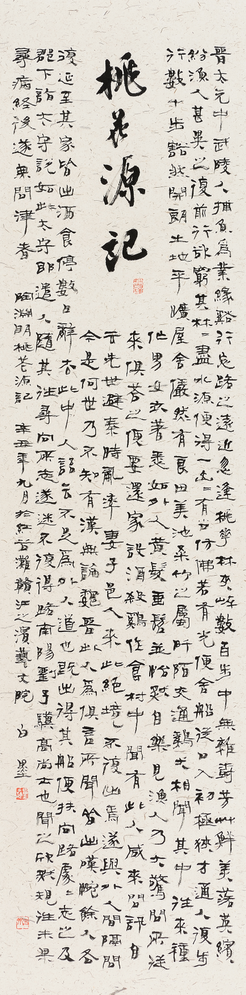 桃花源記
晉太元中武陵人捕魚為業緣谿行忘路之遠近忽逢桃華林夾岸數百步中無雜樹芳艸鮮美落英繽
紛漁人甚異之復前行欲窮其林林盡水源便得一山山有小口仿佛若有光便舍船從口入初極狹才通人復步
行數十步豁然開朗土地平曠屋舍儼然有良田美池桑竹之屬阡陌交通雞犬相聞其中往來種
作男女衣著悉如外人黃髮垂髫並怡然自樂見漁人乃大驚問所從
來俱荅之便要還家設酒殺雞作食村中聞有此人咸來問訊自
云先世避秦時亂率妻子邑人來此絕境不復出焉遂與外人間隔問
今是何世乃不知有漢無論魏晉此人為具言所聞皆嘆惋餘人各
復延至其家皆出酒食停數日辭去此中人語云不足為外人道也既出得其船便扶向路處處志之及
郡下詣太守說如此太守即遣人隨其往尋向所志遂迷不復得路南陽劉子驥高尚士也聞之欣然規往未果
尋病終後遂無問津者 陶淵明桃花源記 辛丑年九月於 贛江之濱藝文院 白墨